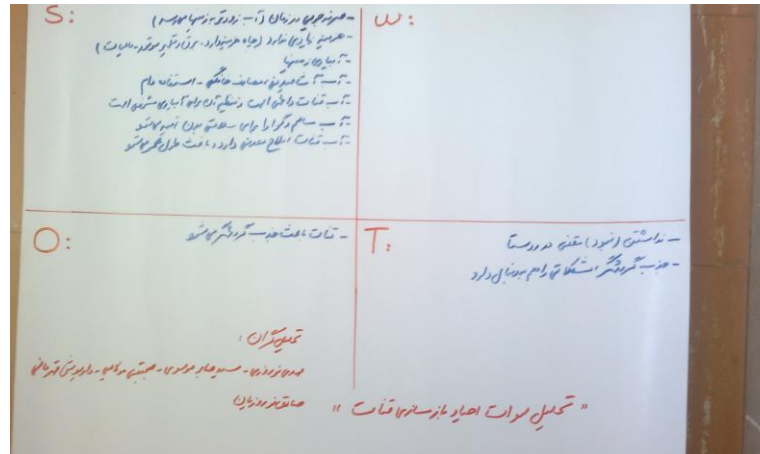 S:
- صرفه جویی در زمان (آب زودتر به زمینها می‌رسد)
- هزینه زیادی ندارد (چاه هزینه دارد - برق و تلمبه موتور - مالیات)
- آبیاری زمینها
- آب آشامیدنی، مصارف خانگی - استفاده دام
- آب قنات دائمی است و تنظیم آن برای آبیاری مشخص است
- آب سالم و گوارا برای سلامتی بدن تهیه می‌شود
- آب قنات املاح معدنی دارد و باعث طول عمر می‌شود
W:
O:
- قنات باعث جذب گردشگر می‌شود
T:
- نداشتن (نبود) مقنی در روستا
- جذب گردشگر، مشکلاتی را هم بدنبال دارد
تحلیل گران:
نوروزی - سید جابر موسوی - مجتبی - قهرمانی
صادق نوروزیان
"تحلیل سوات احیاء و بازسازی قنات"